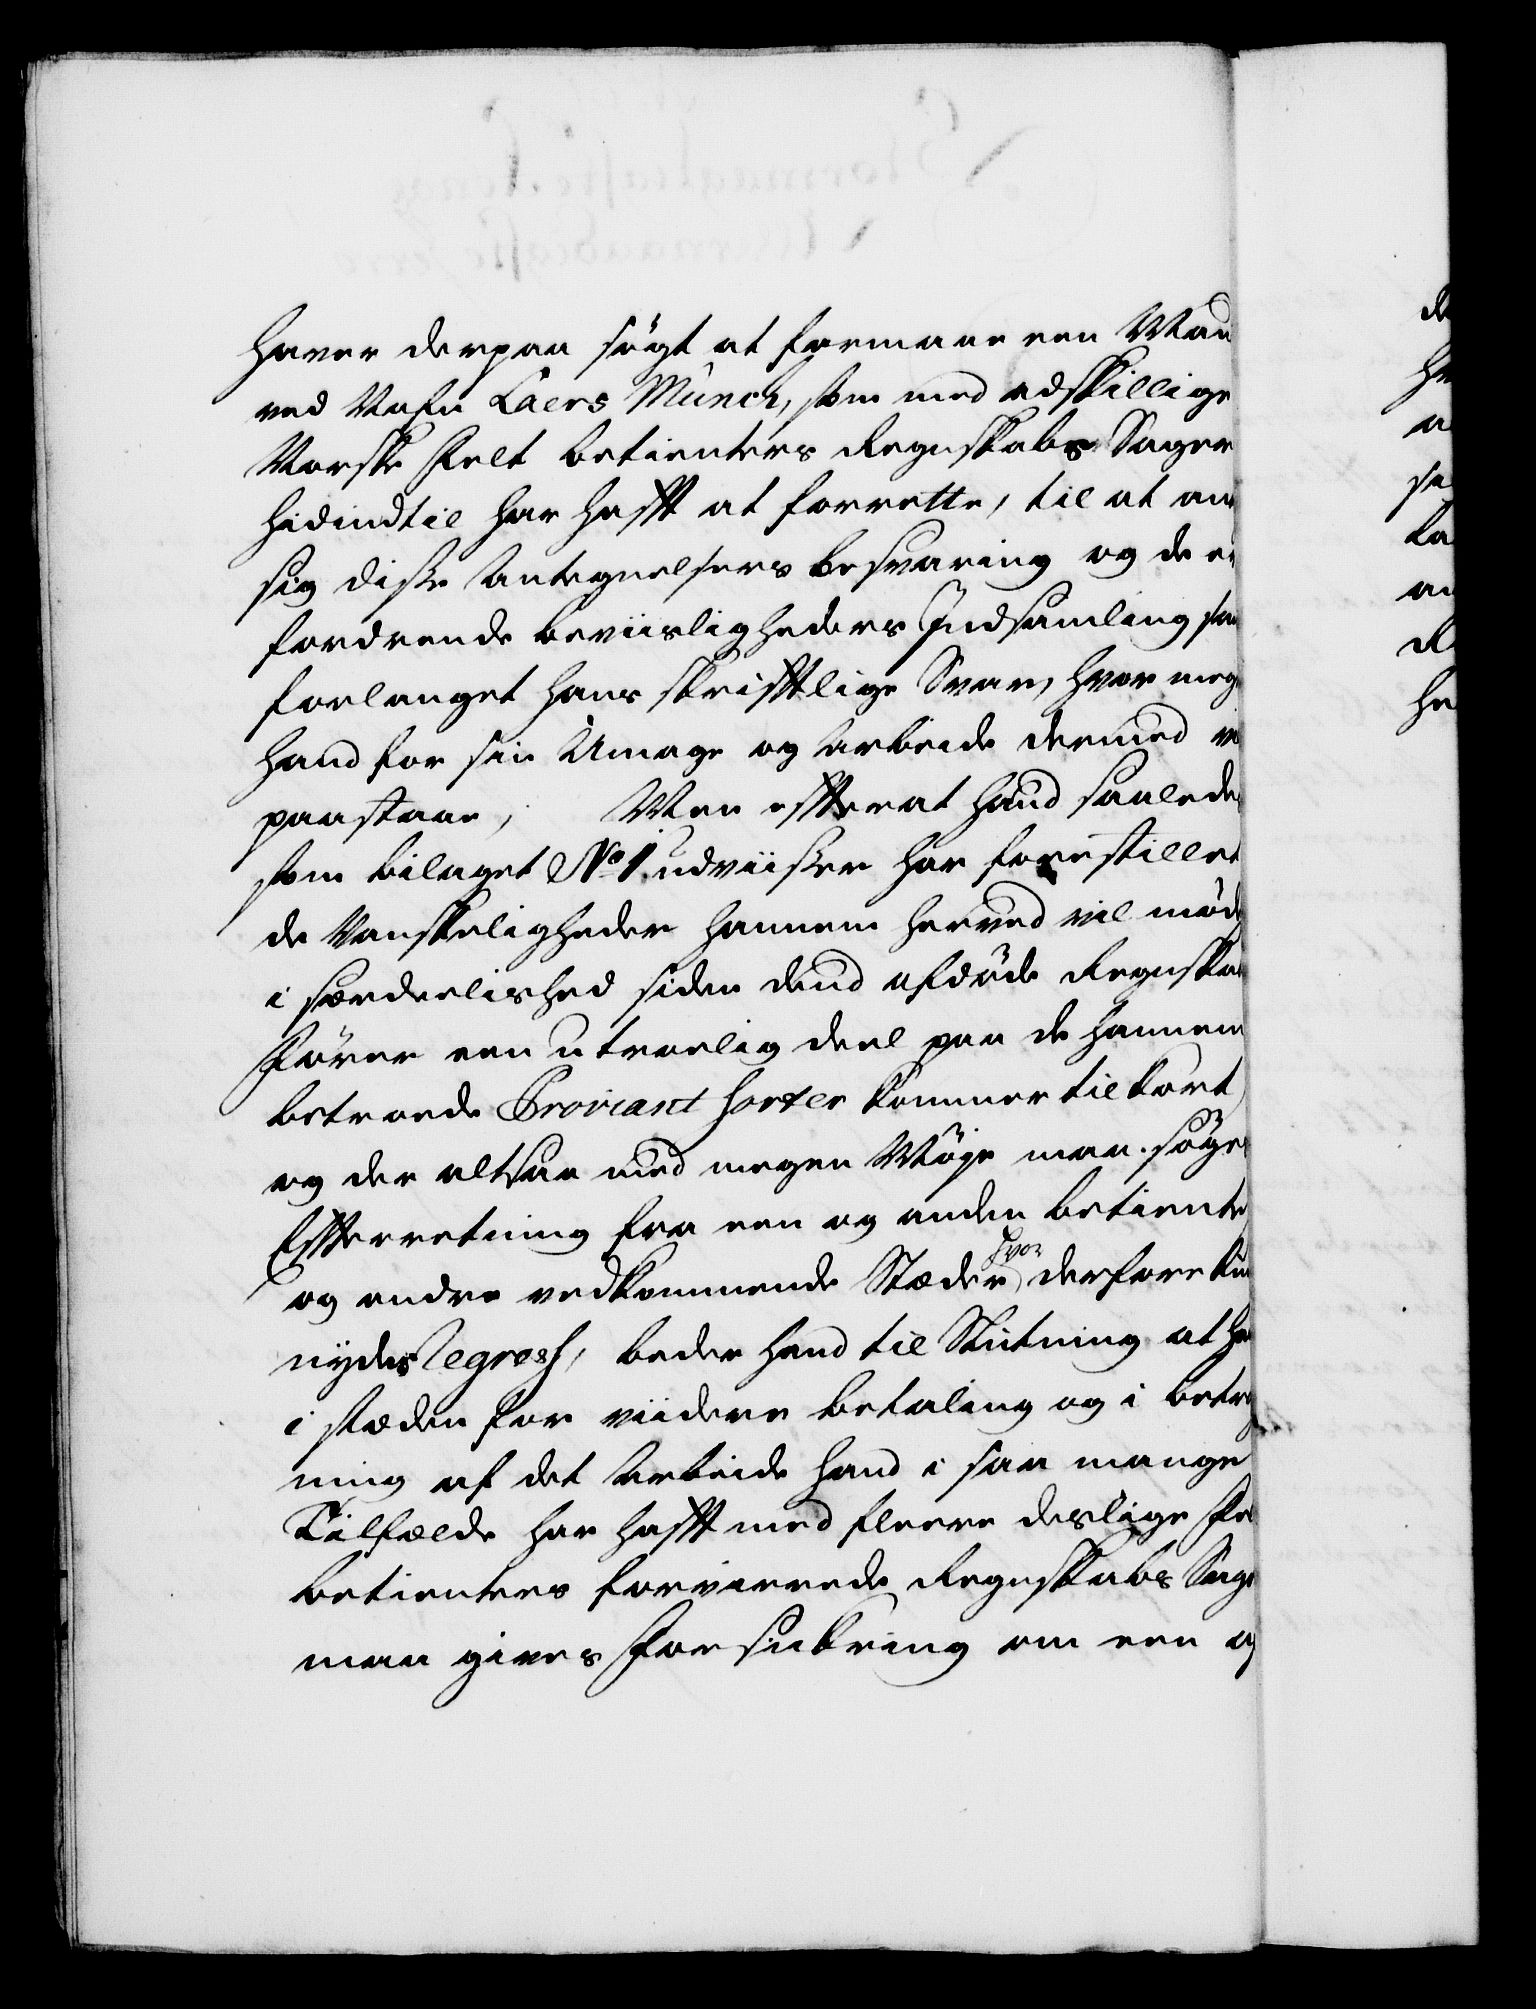 haver derpaa søgt at formaae een Man
ved Nafn Laers Münch, som med adskillige
Norske Felt betienters Regnskabs Sager
hidindtil har hafft at forrette, til at an
sig diße Antegnelsers besvaring og de er
fordrende beviisligheders Indsamling, sa
forlanget hans skrifftlige Svar, hvor meg
hand for sin Umage og Arbeide dermed vi
paastaae, Men effterat hand saalede
som bilaget No 1. udviißer har forestillet
de Vanskeligheder hannem herved vil møde
i særdeelished siden dend afdøde Regnska
fører een utroelig deel paa de hannem
betroede Proviant Sorter kommer til kort
og der altsaa med megen Møje maa søges
Effterretning fra een og anden betiente
og andre vedkommende Stæder, hvor derfore kun
nydes Regress, beder hand til Slutning at ha
i stæden for viidere betaling og i betrag
ning af det Arbeide hand i saa mange
Tilfælde har hafft med fleere deslige Fe
betienters forvirrede Regnskabs Sage
maa gives Forsickring om een og